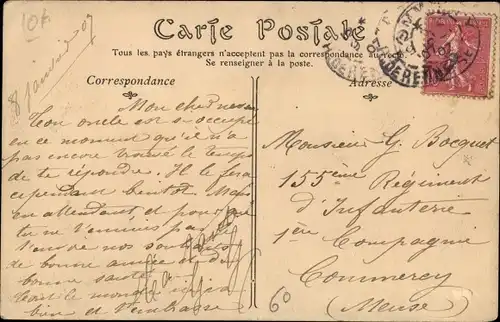 10f
8 janvier 07
Carte Postale
Tous les pays étrangers n'acceptent pas la correspondance au recto.
Se renseigner à la poste.
Correspondance
Adresse
Mon cher neveu
Ton oncle est si occupé
en ce moment qu'il n'a
pas encore trouvé le temps
de te répondre. Il le fera
cependant bientôt. Mais
en attendant, et pour que
tu ne t'ennuies pas
nos souhaits
de bonne année et de
bonne santé
Tout le monde ici
bien et t'embrasse
Monsieur G. Bocquet
155ème Régiment
d'Infanterie
1ère Compagnie
Commercy
(Meuse)
60